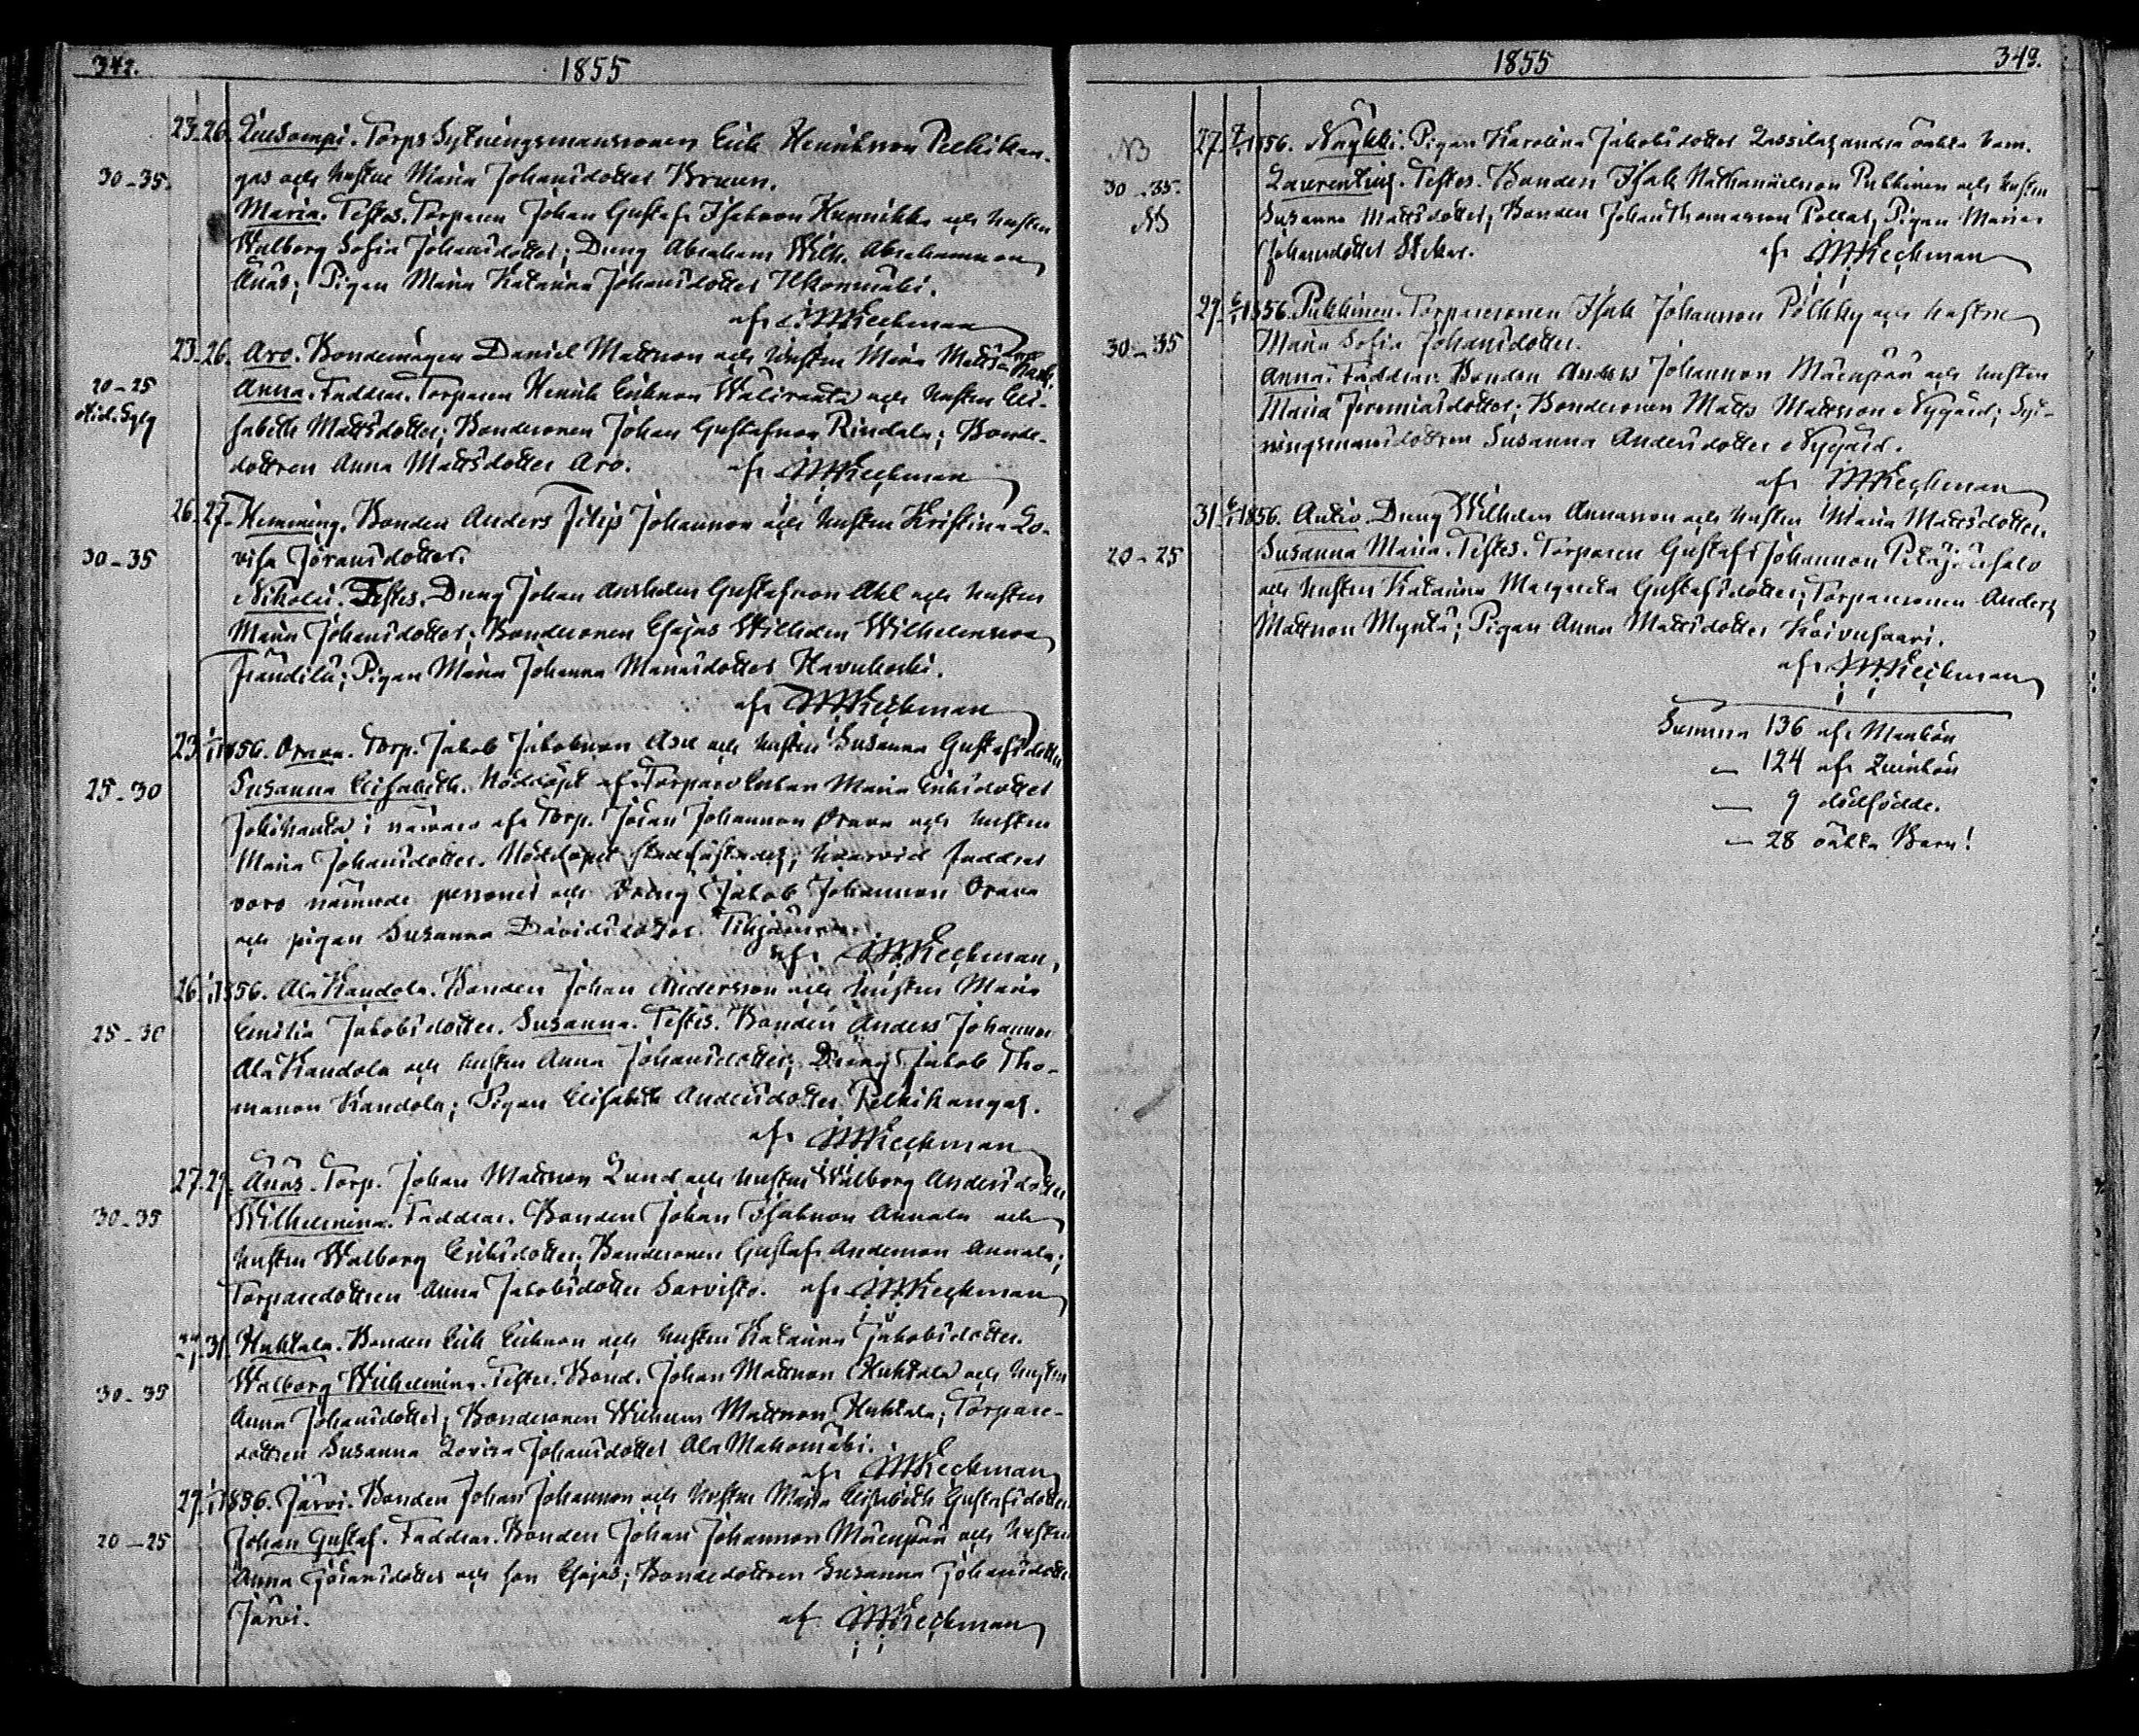 342.
1855
23. 26. Torps Sytningsmanssonen Erik Henriksson Pelkikan-
30-35. gas och hustru Maria Johansdotter Bruun.
Maria. Testes. Torparen Johan Gustaf Isaksson Hunnikko och hustru
Walborg Sofia Johansdotter; Dreng Abraham Wilh. Abrahamsson
Ånäs; Pigan Maria Katarina Johansdotter Ilkonmäki.
af MKeckman
23. 26. Aro. Bondemågen Daniel Mattsson och hustru Maria Mattsd:r
20-25 Anna. Faddrar. Torparen Henrik Eriksson Waliranta och hustru Eli-
sabeth Mattsdotter; Bondesonen Johan Gustafsson Rindala; Bonde-
dottren Anna Mattsdotter Aro. af MKeckman
26. 27. Hemming. Bonden Anders Filip Johansson och hustru Kristina Lo-
30-35 visa Jöransdotter.
Nikolai. Testes. Dreng Johan Anshelm Gustafsson Ahl och hustru
Maria Johansdotter; Bondesonen Esajas Wilhelm Wilhelmsson
Frändilä; Pigan Maria Johanna Mariasdotter Havukoski.
af MKeckman
23. 1/1 1856. Orava. Torp. Jakob Jakobsson Asu och hustru Susanna Gustafsdotter
25-30 Susanna Elisabeth. Nöddöpt af Torpare Enkan Maria Eriksdotter
Jokihanta i närvaro af Torp. Jöran Johansson Orava och hustru
Maria Johansdotter. Nöddopet stadfästades, hvarvid faddrar
voro nämnde personer och Dreng Jakob Johansson Orava
och pigan Susanna Davidsdotter
af MKeckman,
26. 1/1 1856. Ala Kandola. Bonden Johan Andersson och hustru Maria
25-30 Emilia Jakobsdotter. Susanna. Testes. Bonden Anders Johansson
Ala Kandola och hustru Anna Johansdotter; Dreng Jakob Tho-
masson Kandola; Pigan Elisabeth Andersdotter Pelkikangas.
af MKeckman
27. 29. Ånäs. Torp. Johan Mattsson Lund och hustru Walborg Andersdotter
30-35 Wilhelmina. Faddrar. Bonden Johan Isaksson Annala och
hustru Walborg Eriksdotter; Bondesonen Gustaf Andersson Annala;
Torparedottren Anna Jakobsdotter Sarvisto. af MKeckman
27. 31. Huhtala. Bonden Erik Eriksson och hustru Katarina Jakobsdotter.
30-35 Walborg Wilhelmina. Testes. Bond. Johan Mattsson Huhtala och hustru
Anna Johansdotter; Bondesonen Wilhelm Mattsson Huhtala; Torpare-
dottren Susanna Lovisa Johansdotter Ala Makomäki.
af MKeckman
29. 1/1 1856. Järvi. Bonden Johan Johansson och hustru Maria Elisabeth Gustafsdotter
20-25 Johan Gustaf. Faddrar. Bonden Johan Johansson Mäenpää och hustru
Anna Jöransdotter och son Esajas; Bondedottren Susanna Johansdotter
Järvi. af MKeckman
1855
343.
NB 27. 1856. Näykki. Pigan Karolina Jakobsdotter Lassilas andra oäkta barn.
30-35. Laurentius. Testes. Bonden Isak Nathanaelsson Pukkinen och hustru
NB Susanna Mattsdotter; Bonden Johan Thomasson Pollas; Pigan Maria
Johansdotter af MKeckman
29. 6/1 1856. Pukkinen. Torparesonen Isak Johansson Pölkky och hustru
30-35 Maria Sofia Johansdotter.
Anna. Faddrar. Bonden Anders Johansson Mäenpää och hustru
Maria Jeremiasdotter; Bondesonen Matts Mattsson Nygård; Syt-
ningsmansdottren Susanna Andersdotter Nygård.
af MKeckman
31. 6/1 1856. Antio. Dreng Wilhelm Annasson och hustru Maria Mattsdotter.
20-25 Susanna Maria. Testes. Torparen Gustaf Johansson Petäjäsalo
och hustru Katarina Margareta Gustafsdotter; Torparesonen Anders
Mattsson Myntä; Pigan Anna Mattsdotter Koivusaari.
af MKeckman
Summa 136 af Mankön
— 124 af Qvinkön
— 9 dödfödde.
— 28 oäkta Barn!